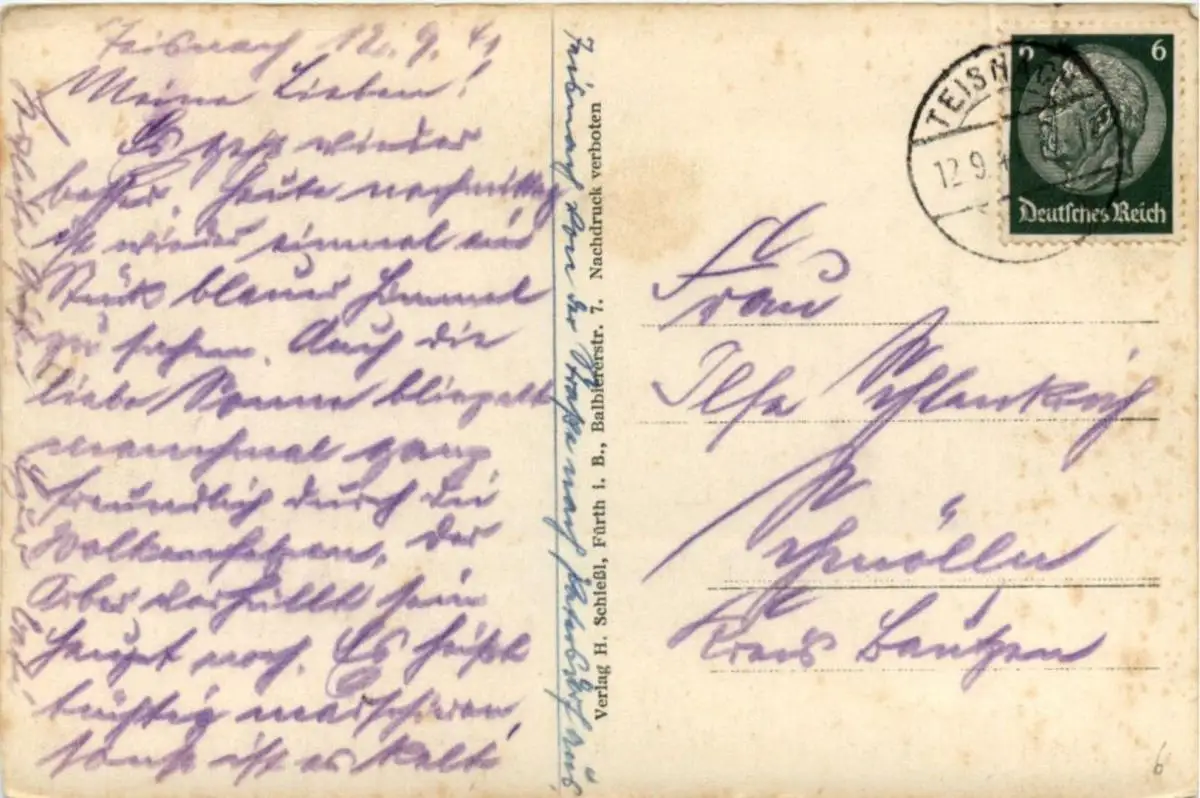 Teisnach 12.9.41
Meine Lieben!
Es geht wieder
besser. Heute nachmittag
ist wieder einmal ein
Stück blauer Himmel
zu sehen. Auch die
liebe Sonne blinzelt
manchmal ganz
freundlich durch die
Wolkenfetzen. Der
Arber verhüllt sein
Haupt noch. Es heißt
tüchtig marschieren,
sonst ist es kalt
Herzliche Grüße
Teisnach von der Straße nach
Verlag H. Schießl, Fürth i. B., Balbiererstr. 7. Nachdruck verboten
TEISNACH
12.9.4
6
Deutsches Reich
Frau
Ilse
Schmölln
Kreis Bautzen
6